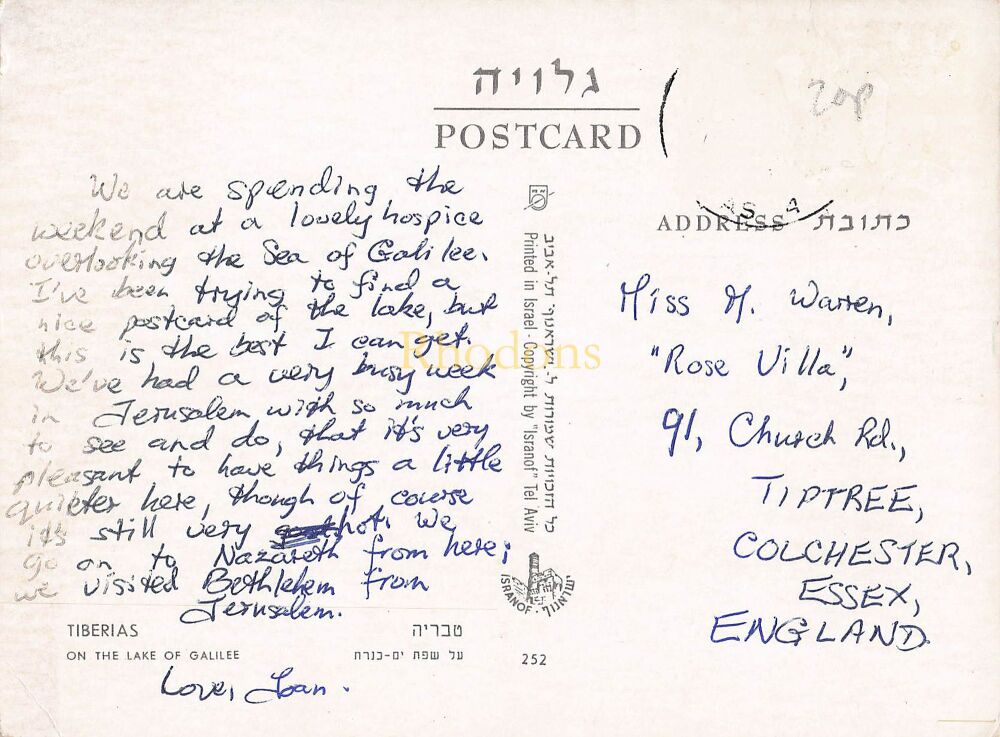 גלויה
POSTCARD
20p
We are spending the
weekend at a lovely hospice
overlooking the Sea of Galilee.
I've been trying to find a
nice postcard of the lake, but
this is the best I can get.
We've had a very busy week
in Jerusalem with so much
to see and do, that it's very
pleasant to have things a little
quieter here, though of course
it's still very hot. We
go on to Nazareth from here;
we visited Bethlehem from
Jerusalem.
Love, Joan.
TIBERIAS
טבריה
ON THE LAKE OF GALILEE
על שפת ים-כנרת
252
כל הזכויות שמורות ל"ישראנוף" תל-אביב
Printed in Israel - Copyright by "Isranof" Tel Aviv
ISRANOF · ישראנוף
Rhodons
ADDRESS כתובת
Miss M. Warren,
"Rose Villa",
91, Church Rd.,
TIPTREE,
COLCHESTER,
ESSEX,
ENGLAND.